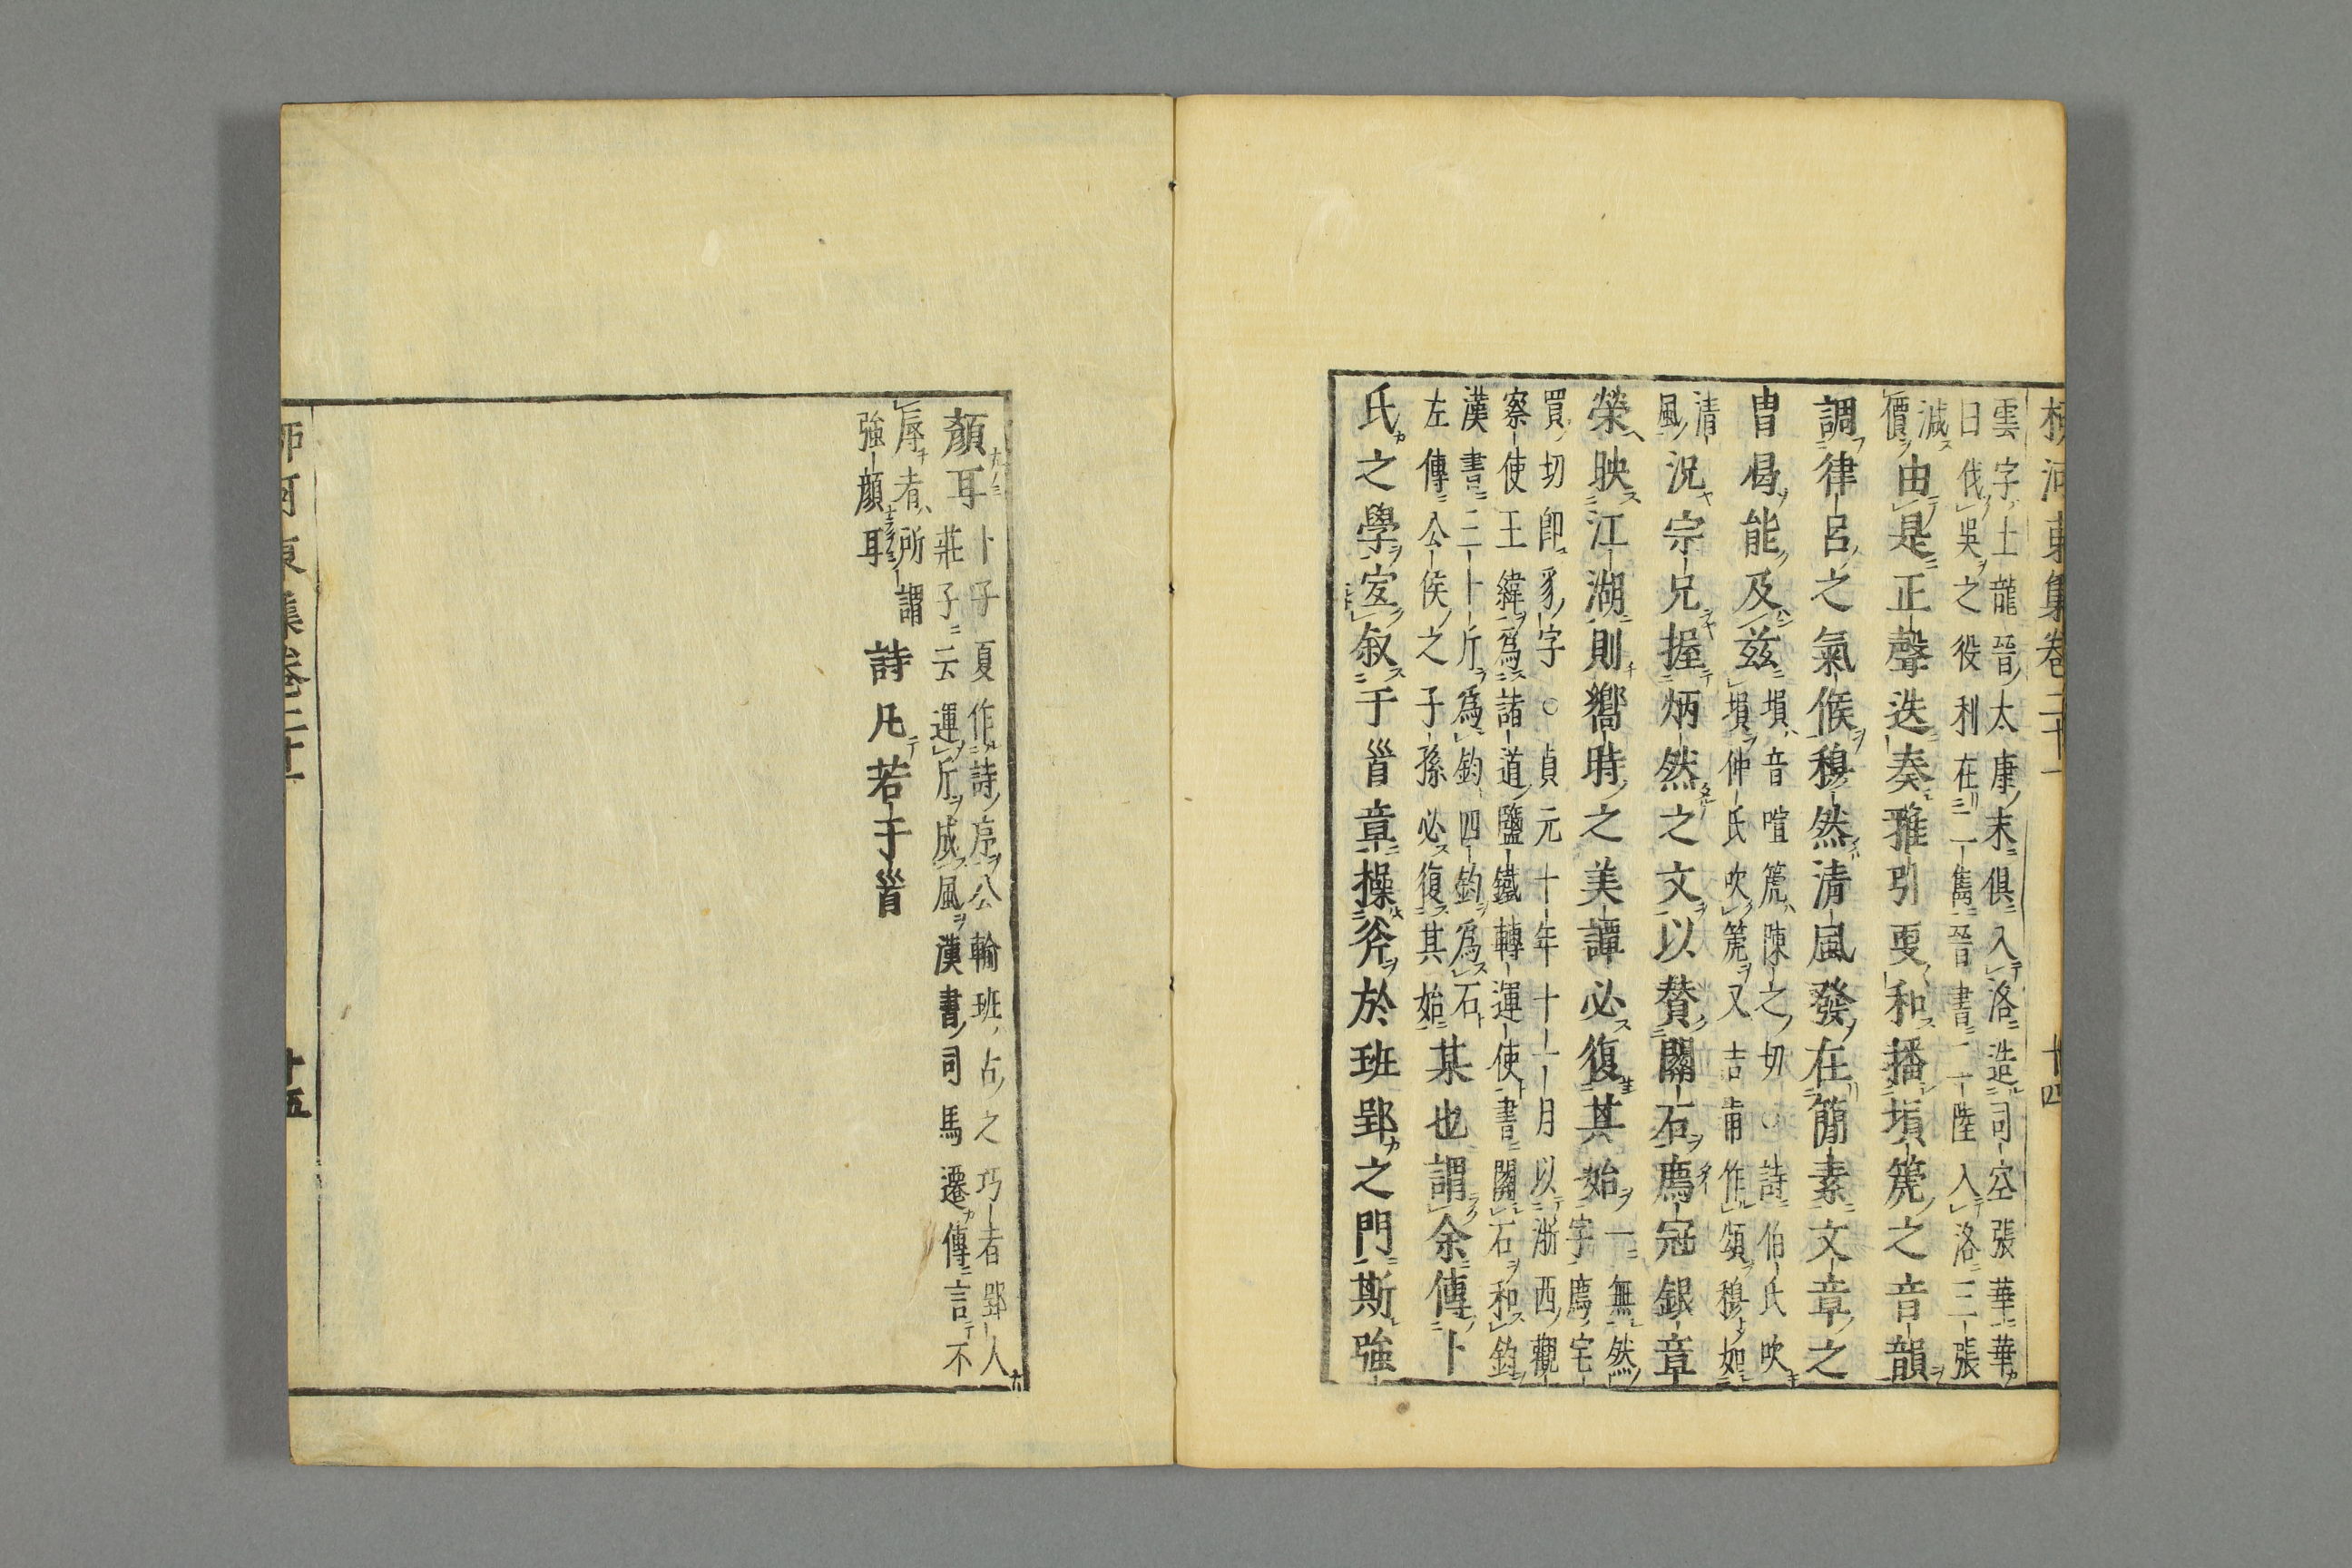 柳河東集卷二十一　十四
雲字士龍晉太康末俱入洛造司空張華華
曰伐吳之役利在二雋晉書二陸入洛三張
減
價由是正聲迭奏雅引更和播塤箎之音韻
調律呂之氣候穆然清風發在簡素文章之
胄曷能及茲塤音喧箎陳之切○詩伯氏吹
塤仲氏吹箎又吉甫作頌穆如
清
風況宗兄握炳然之文以贊關石廌冠銀章
榮映江湖則嚮時之美譚必復其始一無然
字廌宅
買切卽豸字○貞元十年十一月以浙西觀
察使王緯爲諸道鹽鐵轉運使書關石和鈞
漢書二十斤爲鈞四鈞爲石
左傳公侯之子孫必復其始某也謂余傳卜
氏之學宜叙于首章操斧於班郢之門斯強
顏耳卜子夏作詩序公輸班古之巧者郢人
莊子云運斤成風漢書司馬遷傳言不
辱者所謂
強顏耳詩凡若干首
河東集卷二十一　十五